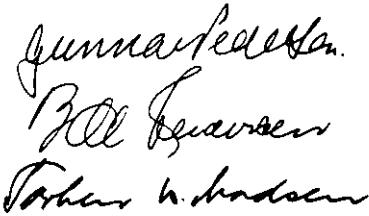 Gunnar Pedersen.
Bill Federsen
Torben N. Madsen